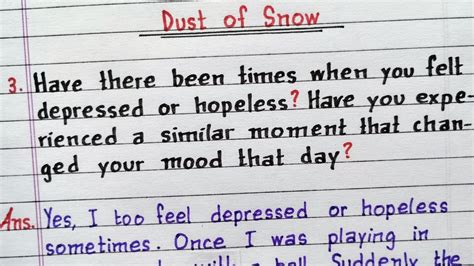 Dust of Snow
3. Have there been times when you felt
depressed or hopeless? Have you expe-
rienced a similar moment that chan-
ged your mood that day?
Ans. Yes, I too feel depressed or hopeless
sometimes. Once I was playing in
a ball. Suddenly the